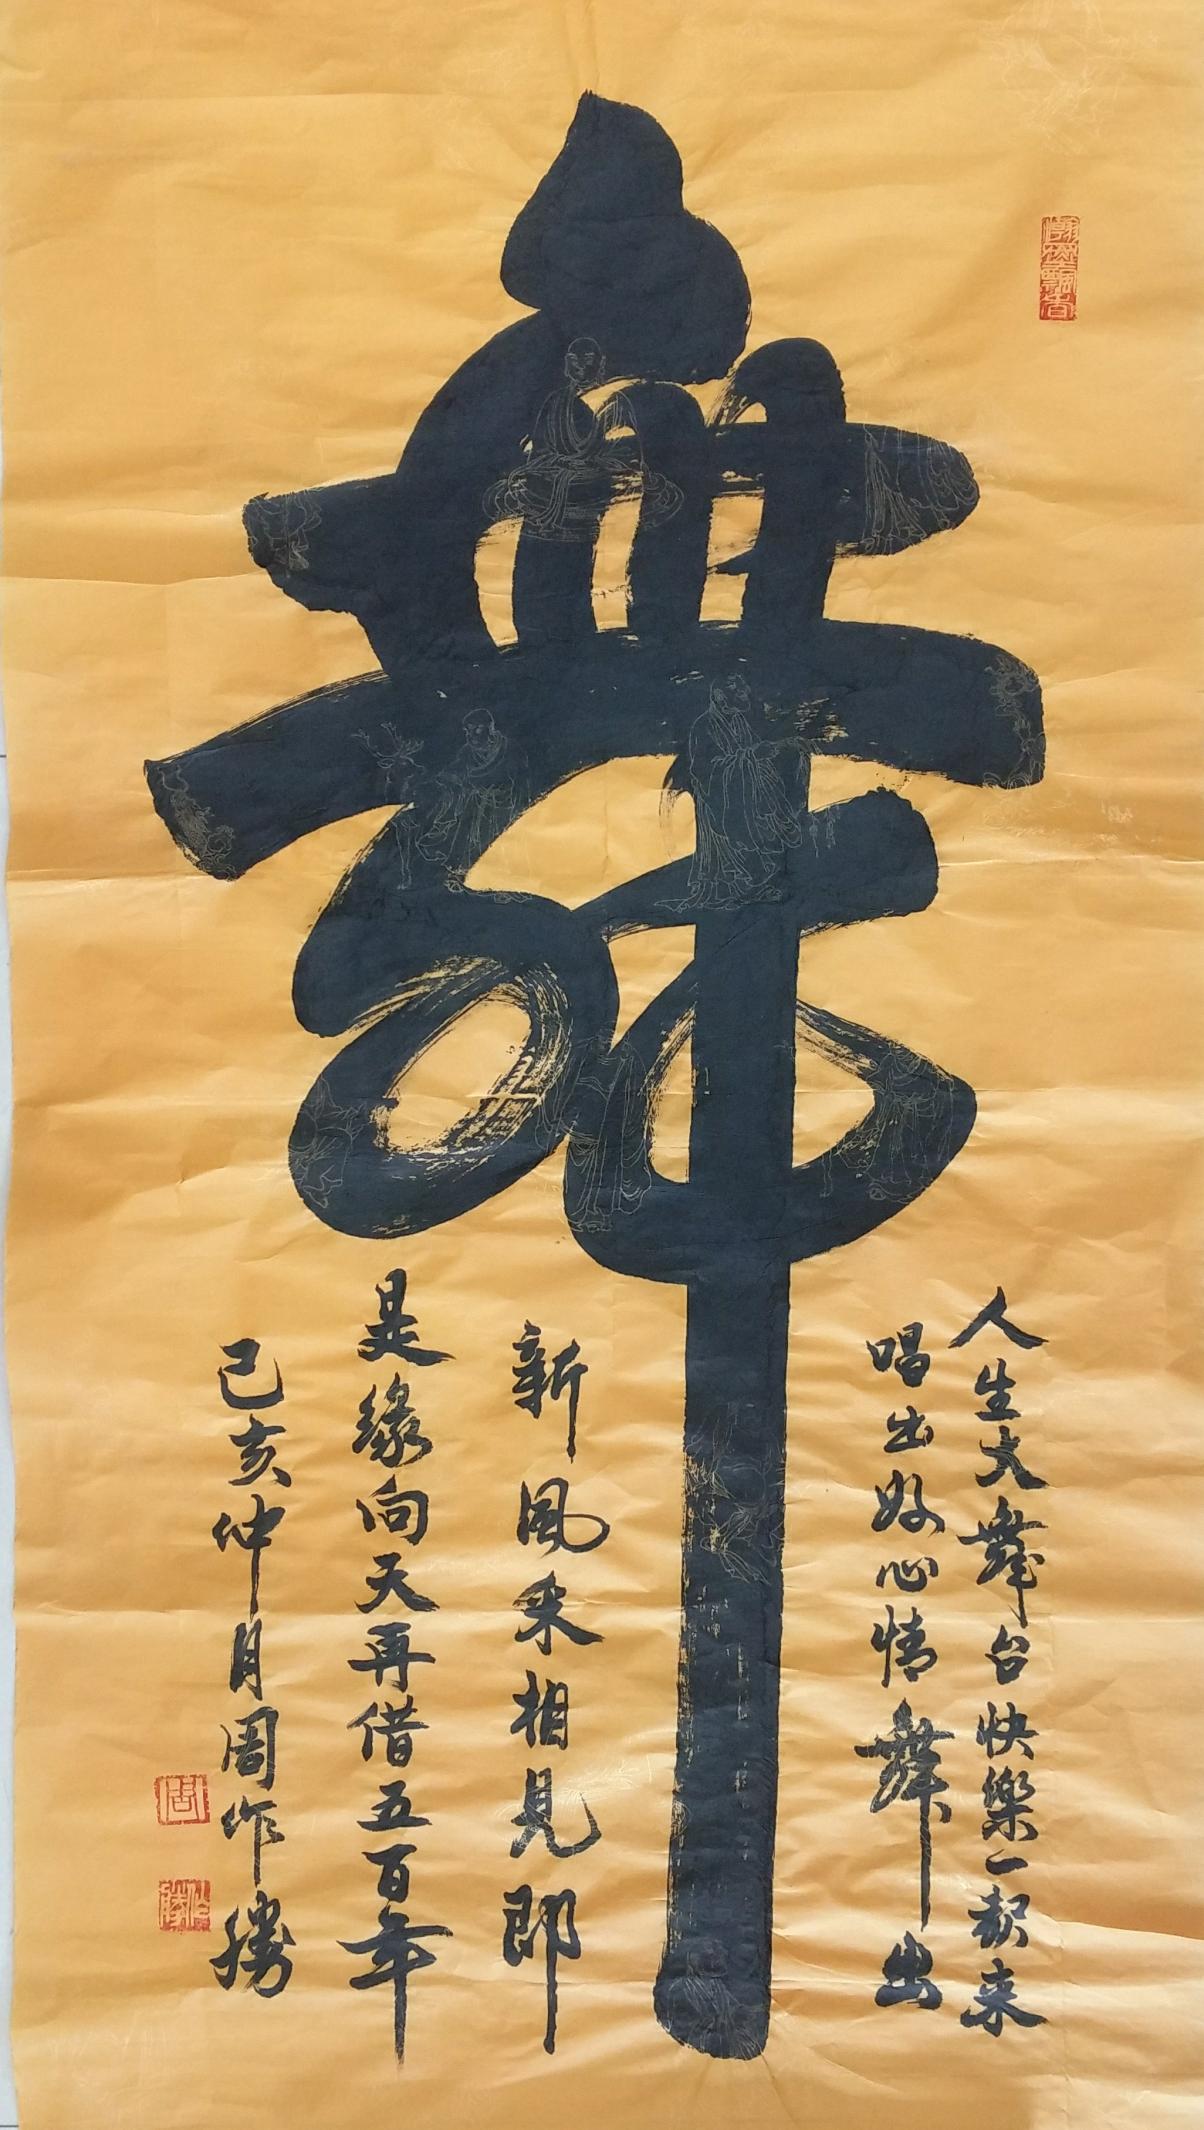 舞
人生大舞台快樂一起来
唱出好心情舞出
新風采相見即
是缘向天再借五百年
己亥仲月周作勝
翰墨飄香
周
作勝